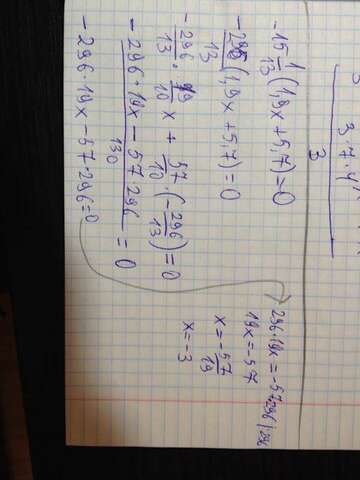 3·7·4
3
-15 1/13 (1,9x+5,7)=0
-296/13 (1,9x+5,7)=0
-296/13 · 19/10 x + 57/10 · (-296/13)=0
(-296·19x - 57·296)/130 = 0
-296·19x-57·296=0
296·19x=-57·296 |:296
19x=-57
x=-57/19
x=-3